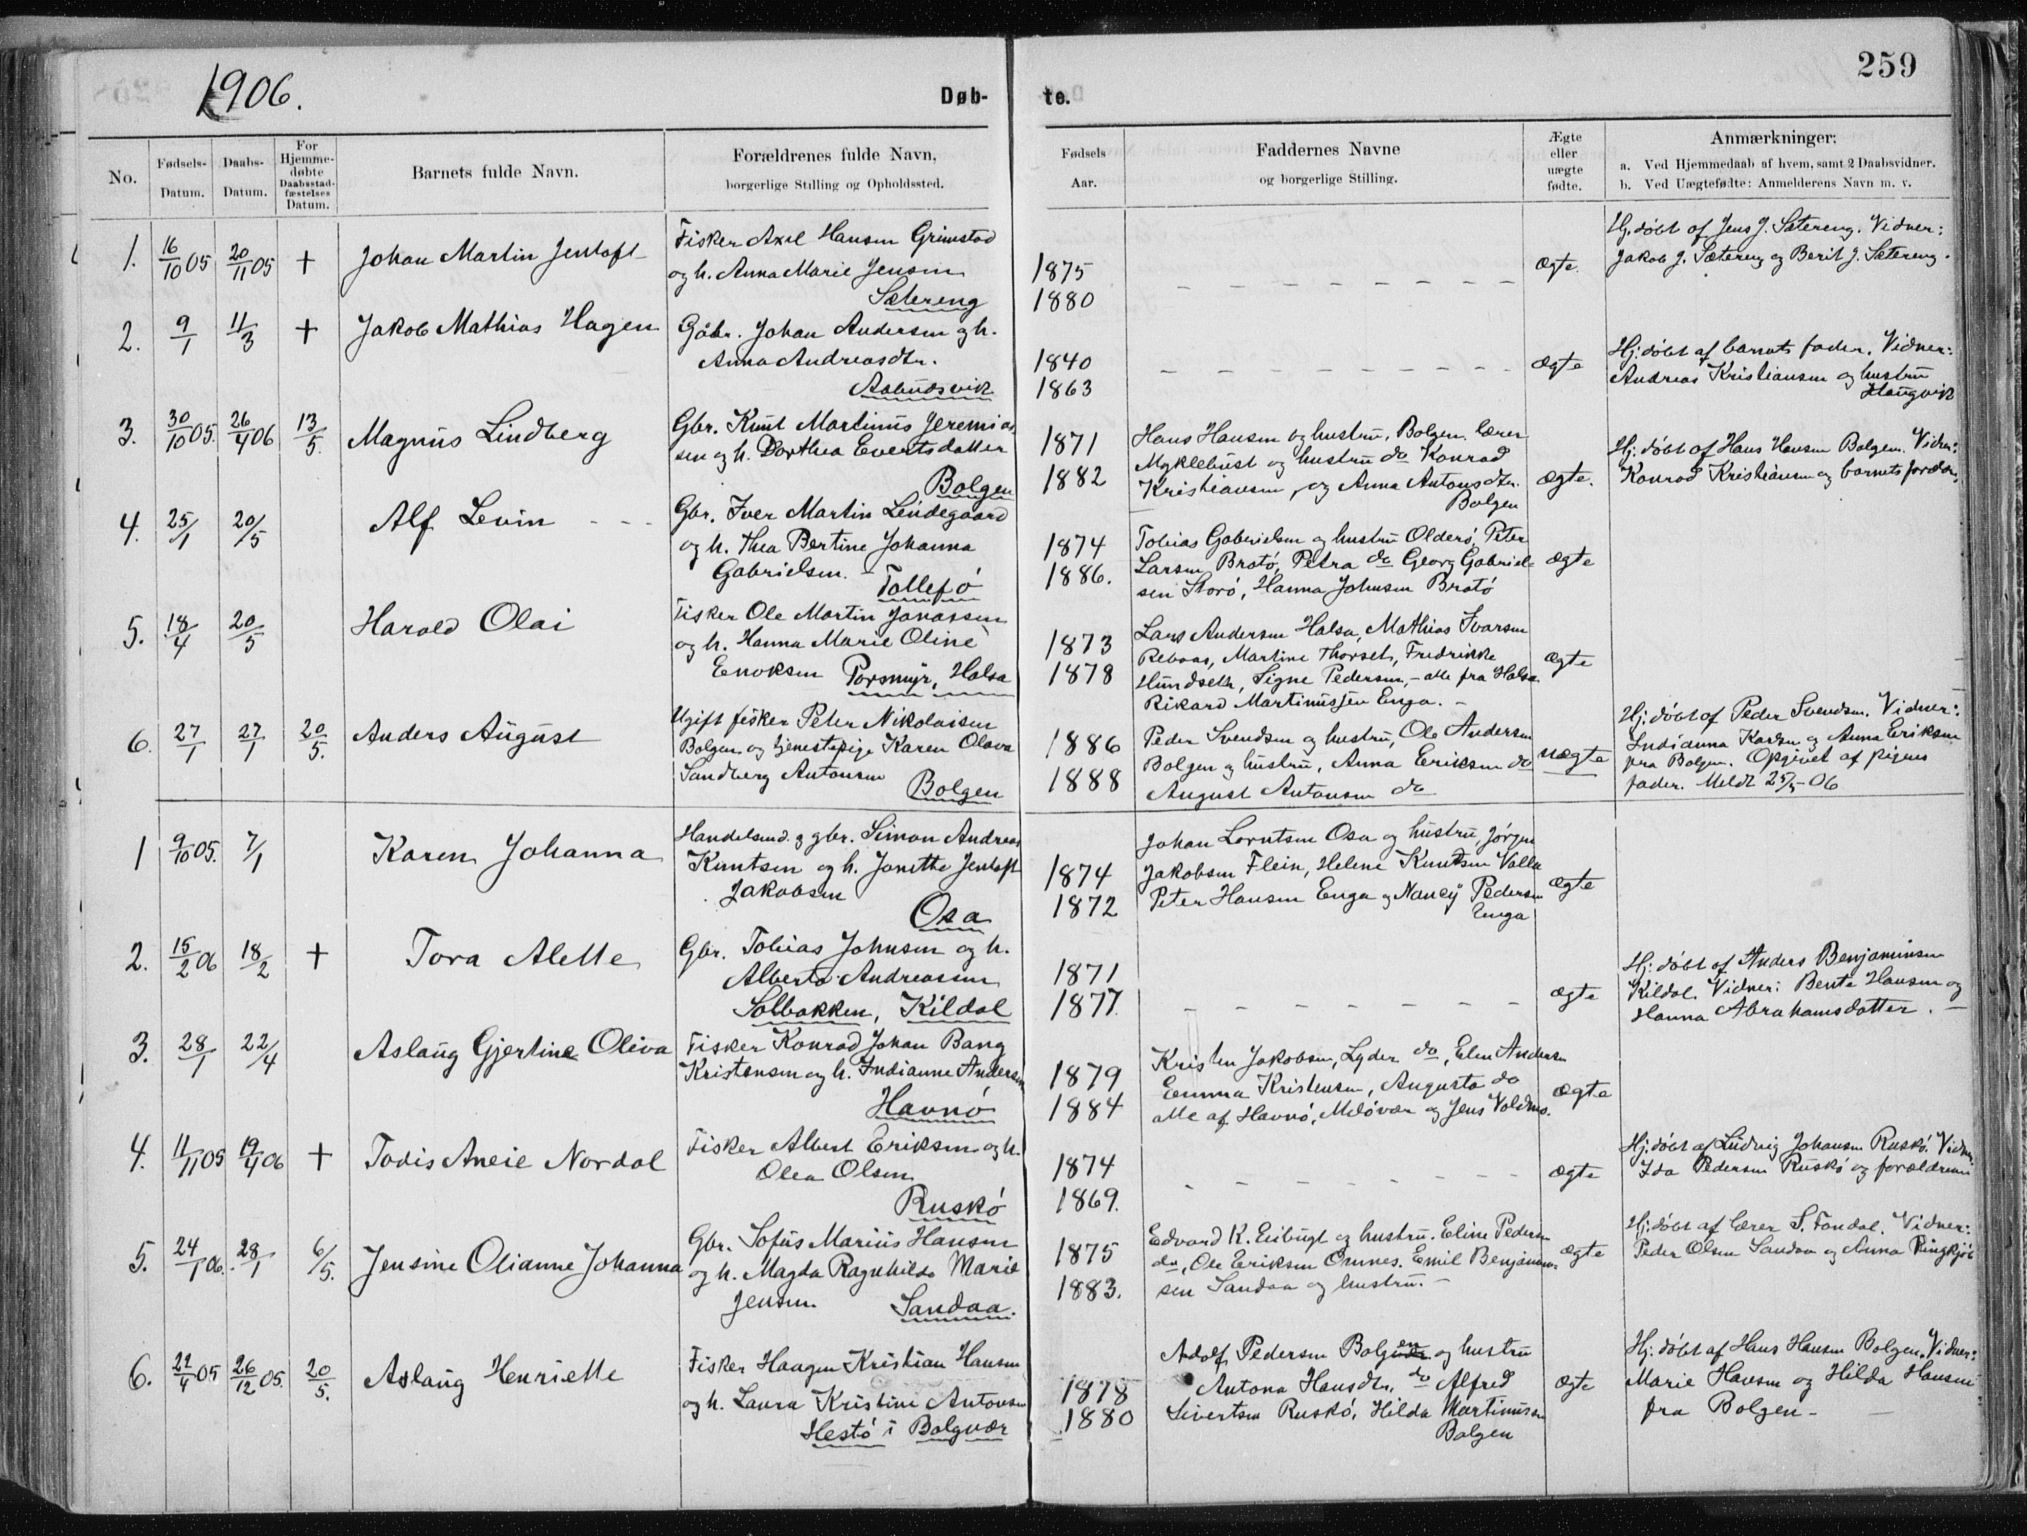 1906.
Døb-
te.
259
No.
Fødsels-
Datum.
Daabs-
Datum.
For
Hjemme-
døbte
Daabsstad-
fæstelses
Datum.
Barnets fulde Navn.
Forældrenes fulde Navn,
borgerlige Stilling og Opholdssted.
Fødsels
Aar.
Faddernes Navne
og borgerlige Stilling.
Ægte
eller
uægte
fødte.
Anmærkninger:
a. Ved Hjemmedaab af hvem, samt 2 Daabsvidner.
b. Ved Uægtefødte: Anmelderens Navn m. v.
1. 16/10 05 20/11 05 + Johan Martin Jentoft
Fisker Axel Hansen Grimstad
og h. Anna Marie Jensen
Sætereng
1875
1880
ægte.
Hj. døbt af Jens J. Sætereng. Vidner:
Jakob J. Sætereng og Berit J. Sætereng.
2. 9/1 11/3 + Jakob Mathias Hagen
Gåbr. Johan Andersen og h.
Anna Andreasdtr.
Aabudsvik
1840
1863
ægte
Hj. døbt af barnets fader. Vidner:
Andreas Kristiansen og hustru
Haugvik
3. 30/10 05. 26/4 06 13/5. Magnus Lindberg
Gbr. Knut Martinus Jeremias
sen og h. Dorthea Evertsdatter
Bolgen
1871
1882
Hans Hansen og hustru, Bolgen. Lærer
Myklebust og hustru do Konrad
Kristiansen, og Anna Antonsdtr.
Bolgen
ægte.
Hj. døbt af Hans Hansen Bolgen. Vidner:
Konrad Kristiansen og barnets forældre
4. 25/1 20/5 Alf Levin - - -
Gbr. Iver Martin Lindegaard
og h. Thea Bertine Johanna
Gabrielsen. - Tollefø
1874
1886.
Tobias Gabrielsen og hustru Olderø, Peter
Larsen Bratø, Petra do Georg Gabriel-
sen Storø, Hanna Johnsen Bratø
ægte
5. 18/4 20/5 Harald Olai
Fisker Ole Martin Jonassen
og h. Hanna Marie Oline
Enoksen Porsmyr, Halsa
1873
1878
Lars Andersen Halsa, Mathias Ivarsen
Reboas, Martine Thorset, Fredrikke
Hundseth, Signe Pedersen, - alle fra Halsa.
Rikard Martinussen Enga. -
ægte
6. 27/1 27/1 20/5. Anders August
Ugift fisker Peter Nikolaisen
Bolgen og tjenestepige Karen Olava
Sandberg Antonsen Bolgen
1886
1888
Peder Svendsen og hustru, Ole Andersen
Bolgen og hustru, Anna Eriksen do
August Antonsen do
uægte
Hj. døbt af Peder Svendsen. Vidner:
Indianna Karlsen og Anna Eriksen
fra Bolgen. Opgivet af pigens
fader. Meldt 25/5-06
1 9/10 05. 7/1 Karen Johanna
Handelsmd. og gbr. Simon Andreas
Knutsen og h. Janette Jentoft
Jakobsen
Osa
1874
1872
Johan Lorntsen Osa og hustru, Jørgen
Jakobsen Flein, Helene Knutsen Valla
Peter Hansen Enga og Nancy Pedersen
Enga
ægte
2. 15/2 06 18/2 + Tora Alette
Gbr. Tobias Johnsen og h.
Alberta Andreassen
Solbakken, Kildal
1871
1877.
ægte
Hj. døbt af Anders Benjaminsen
Kildal. Vidner: Bente Hansen og
Hanna Abrahamsdatter. -
3. 28/1 22/4 Aslaug Gjertine Oliva
Fisker Konrad Johan Bang
Kristensen og h. Indianne Andersen
Havnø
1879
1884
Kristen Jakobsen, Lyder do, Elen Andersen
Emma Kristensen, Augusta do
alle af Havnø, Meløvær og Jens Voldmo.
ægte
4. 11/11 05 19/4 06 + Todis Aneie Nordal
Fisker Albert Eriksen og h.
Olea Olsen
Ruskø
1874
1869.
ægte
Hj. døbt af Ludvig Johansen Ruskø. Vidner
Ida Pedersen Ruskø og forældrene
5. 24/1 06. 28/1 6/5. Jensine Olianne Johanna
Gbr. Sofus Marius Hansen
og h. Magda Ragnhilda Marie
Jensen Sandaa.
1875
1883.
Edvard K. Eibugt og hustru. Eline Pedersen
do, Ole Eriksen Omnes. Emil Benjamin-
sen Sandaa og hustru. -
ægte
Hj. døbt af Lærer S. Fondal. Vidner:
Peder Olsen Sandaa og Anna Ringkjøb
6. 22/4 05 26/12 05. 20/5. Aslaug Henriette
Fisker Haagen Kristian Hansen
og h. Laura Kristine Antonsen
Hestø i Bolgvær
1878
1880
Adolf Pedersen Bolgen og hustru
Antona Hansdtr. do Alfred
Sivertsen Ruskø, Hilda Martinussen
Bolgen
ægte
Hj. døbt af Hans Hansen Bolgen. Vidner:
Marie Hansen og Hilda Hansen
fra Bolgen -